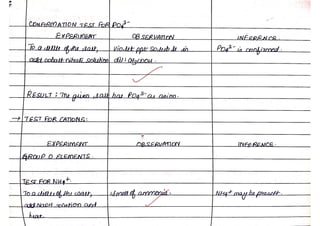 CONFIRMATION TEST FOR PO₄³⁻
EXPERIMENT OBSERVATION INFERENCE
To a dilute of the salt, Violet ppt soluble in PO₄³⁻ is confirmed.
add cobalt nitrate solution dil: glycou.
RESULT: The given salt has PO₄³⁻ as anion.
→ TEST FOR CATIONS:
EXPERIMENT OBSERVATION INFERENCE
GROUP 0 ELEMENTS
TEST FOR NH₄⁺
To a dilute of the salt, Smell of ammonia. NH₄⁺ may be present.
add NaOH solution and
heat.